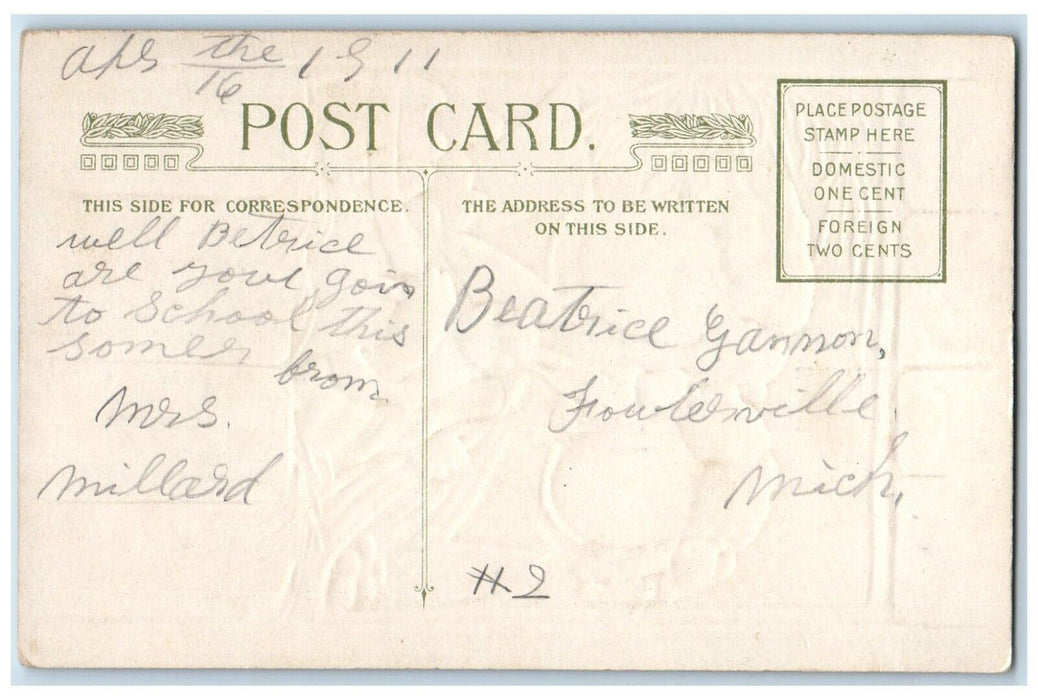 Apr the 16 1911
POST CARD.
PLACE POSTAGE
STAMP HERE
DOMESTIC
ONE CENT
FOREIGN
TWO CENTS
THIS SIDE FOR CORRESPONDENCE.
well Betrice
are your goin
to School this
somer
from
Mrs.
Millard
THE ADDRESS TO BE WRITTEN
ON THIS SIDE.
Beatrice Gannon,
Fowlerville
Mich,
#2